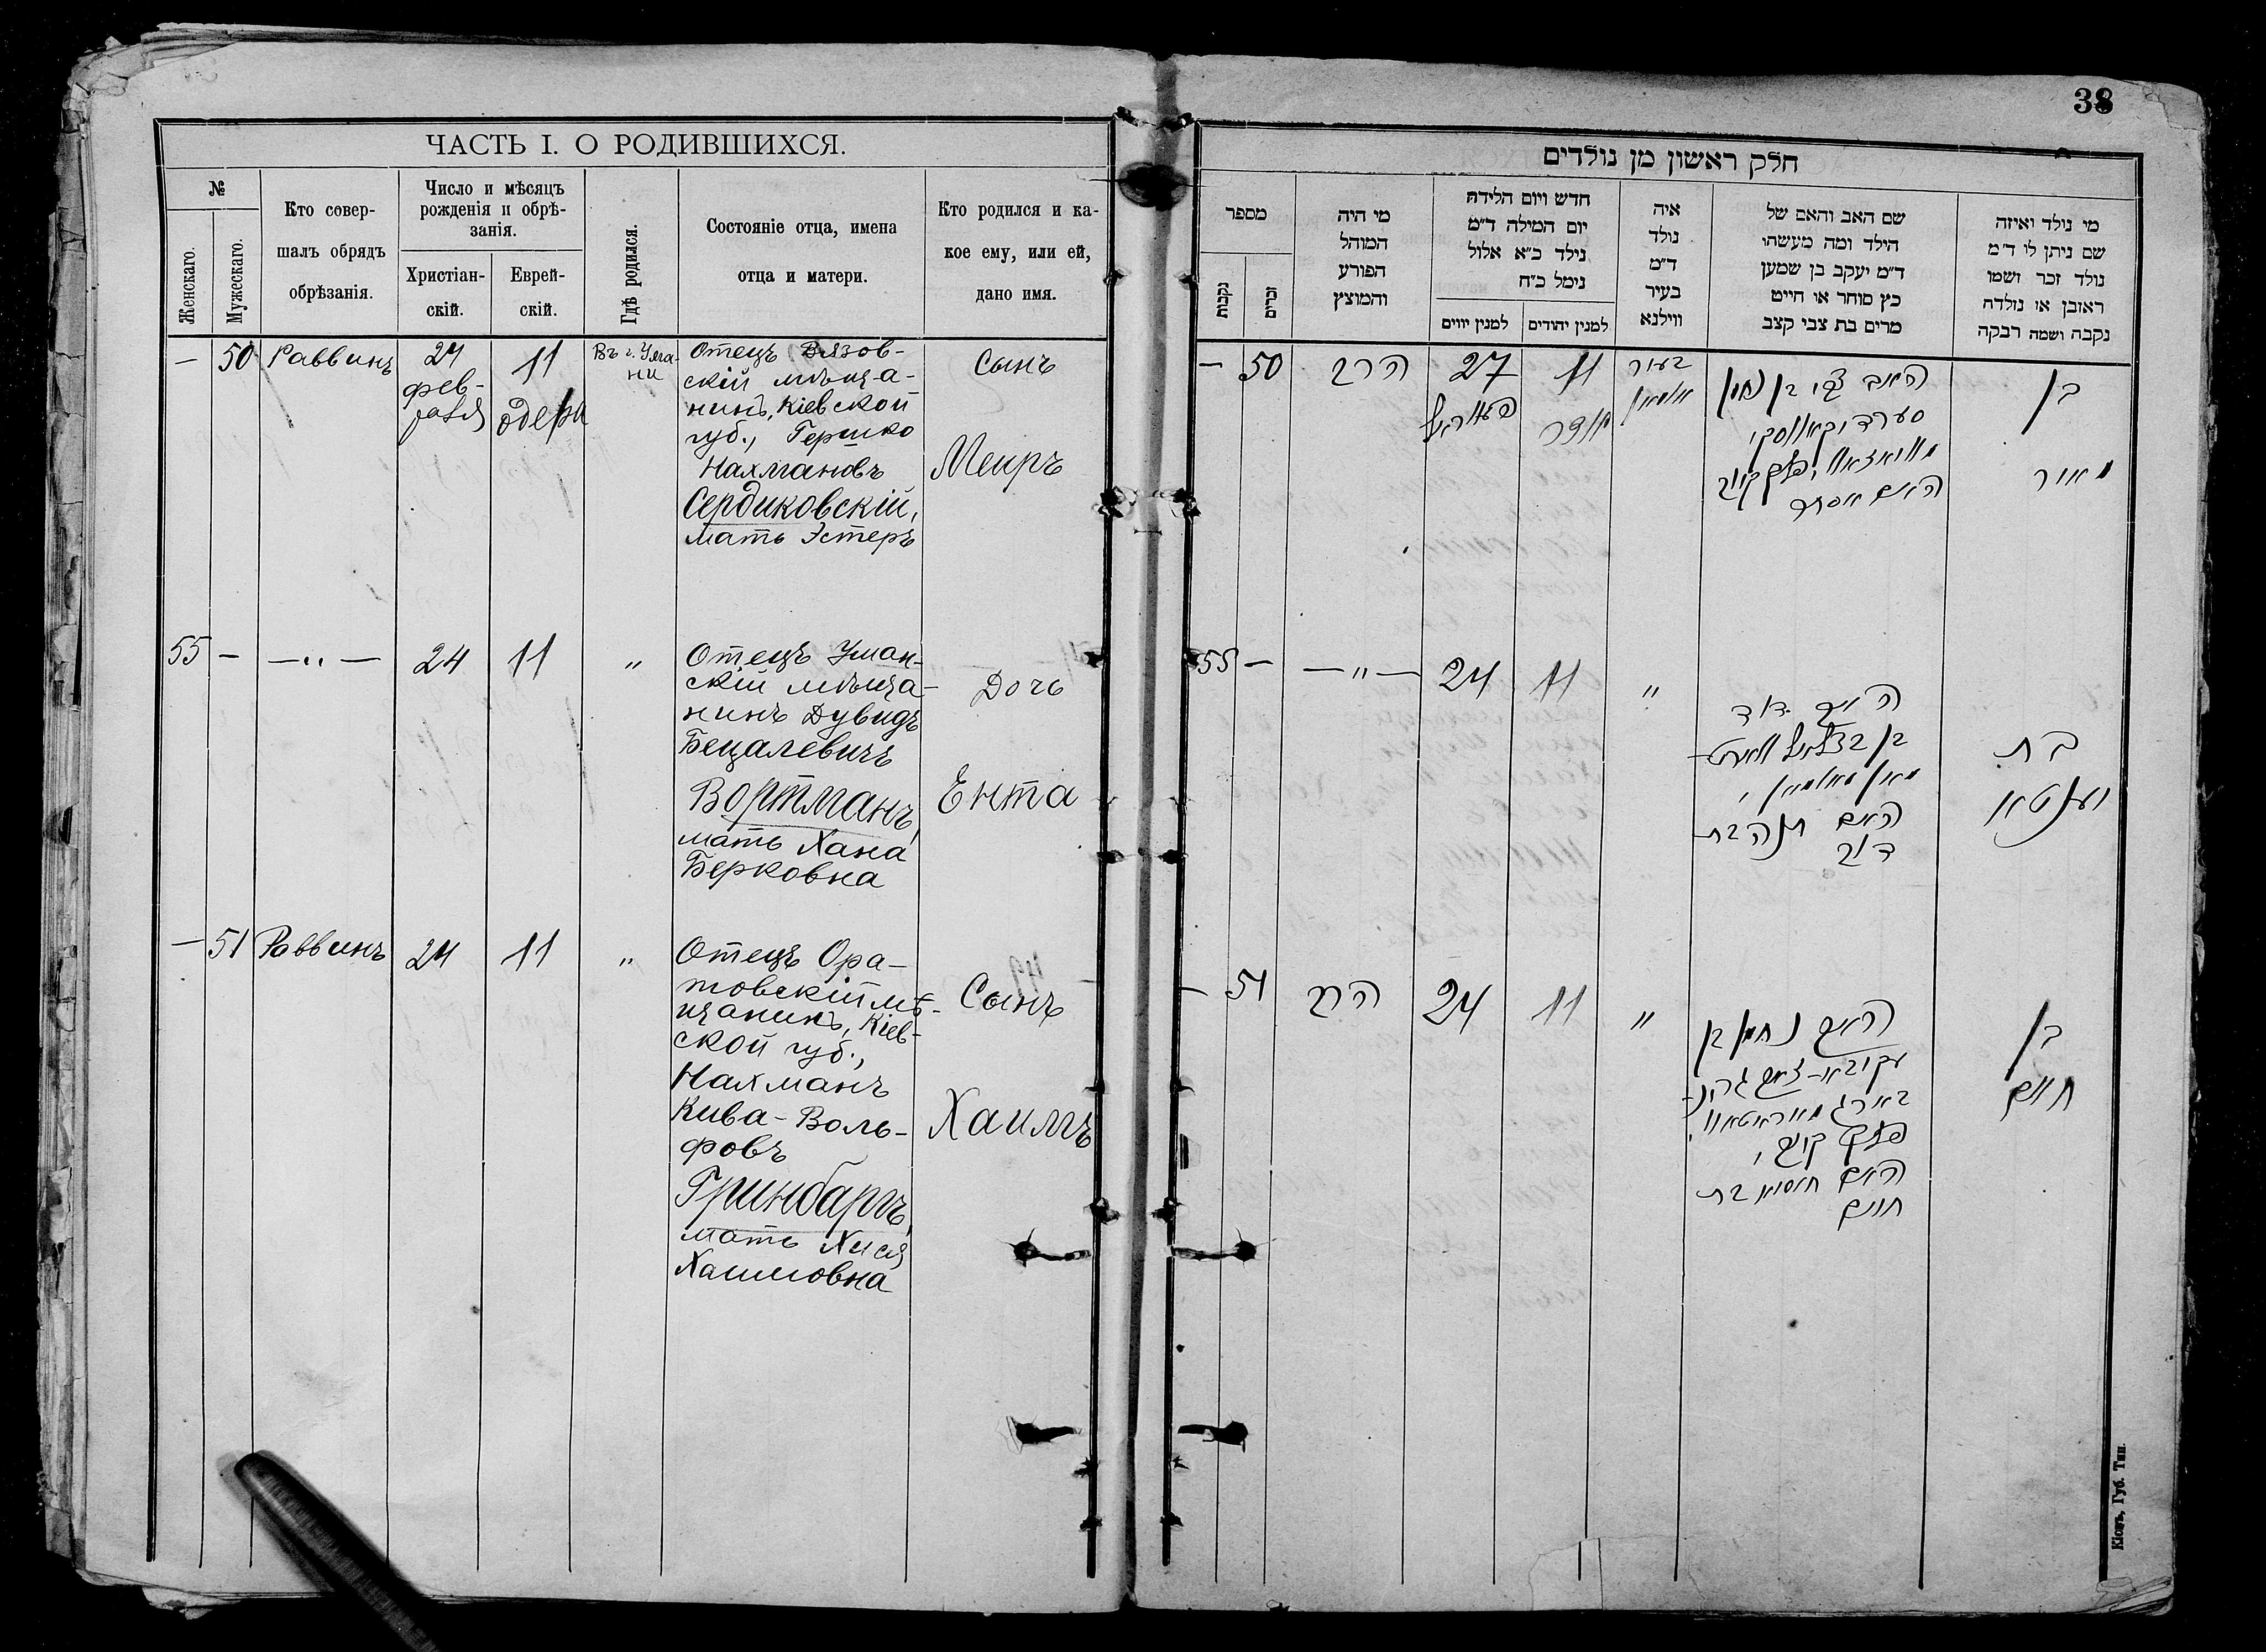 ЧАСТЬ I. О РОДИВШИХСЯ.
№
Женскаго.
Мужескаго.
Кто совер-
шалъ обрядъ
обрѣзанія.
Число и мѣсяцъ
рожденія и обрѣ-
занія.
Христіан-
скій.
Еврей-
скій.
Гдѣ родился.
Состояніе отца, имена
отца и матери.
Кто родился и ка-
кое ему, или ей,
дано имя.
— 50 Раввинъ
24
фев-
раля
11
Адера
Въ г. Ума-
ни
Отецъ Вязов-
скій мѣща-
нинъ, Кіевской
губ., Гершко
Нахмановъ
Сердиковскій,
мать Эстеръ
Сынъ
Меиръ
55 — —"— 24 11 "
Отецъ Уман-
скій мѣща-
нинъ Дувидъ
Бецалевичъ
Вортманъ,
мать Хана
Берковна
Дочь
Ента
— 51 Раввинъ 24 11 "
Отецъ Ора-
товскій мѣ-
щанинъ, Кіев-
ской губ.,
Нахманъ
Кива-Воль-
фовъ
Гринбаргъ,
мать Хися
Хаимовна
Сынъ
Хаимъ
38
חלק ראשון מן נולדים
מספר
נקבות
זכרים
מי היה
המוהל
הפורע
והמוצץ
חדש ויום הלידה
יום המילה ד״מ
נילד כ״א אלול
נימל כ״ח
למנין יווים
למנין יהודים
איה
נולד
ד״מ
בעיר
ווילנא
שם האב והאם של
הילד ומה מעשהו
ד״מ יעקב בן שמען
כץ סוחר או חייט
מרים בת צבי קצב
מי נולד ואיזה
שם ניתן לו ד״מ
נולד זכר ושמו
ראובן או נולדה
נקבה ושמה רבקה
— 50 הרב
27
פעווראל
11
אדר
בעיר
אומאן
האב צבי בן נחמן
סערדיקאווסקי
פלך קיוב
האם אסתר
בן
מאיר
55 — —"— 24 11 "
האב דוד
בן בצלאל ווארט-
מאן מאומאן,
האם חנה בת
דוב
בת
יענטא
— 51 הרב 24 11 "
האב נחמן בן
עקיבא-זאב גרינ-
בארג מאראטאוו,
פלך קיוב,
האם חיסיא בת
חיים
בן
חיים
Кіевъ, Губ. Тип.